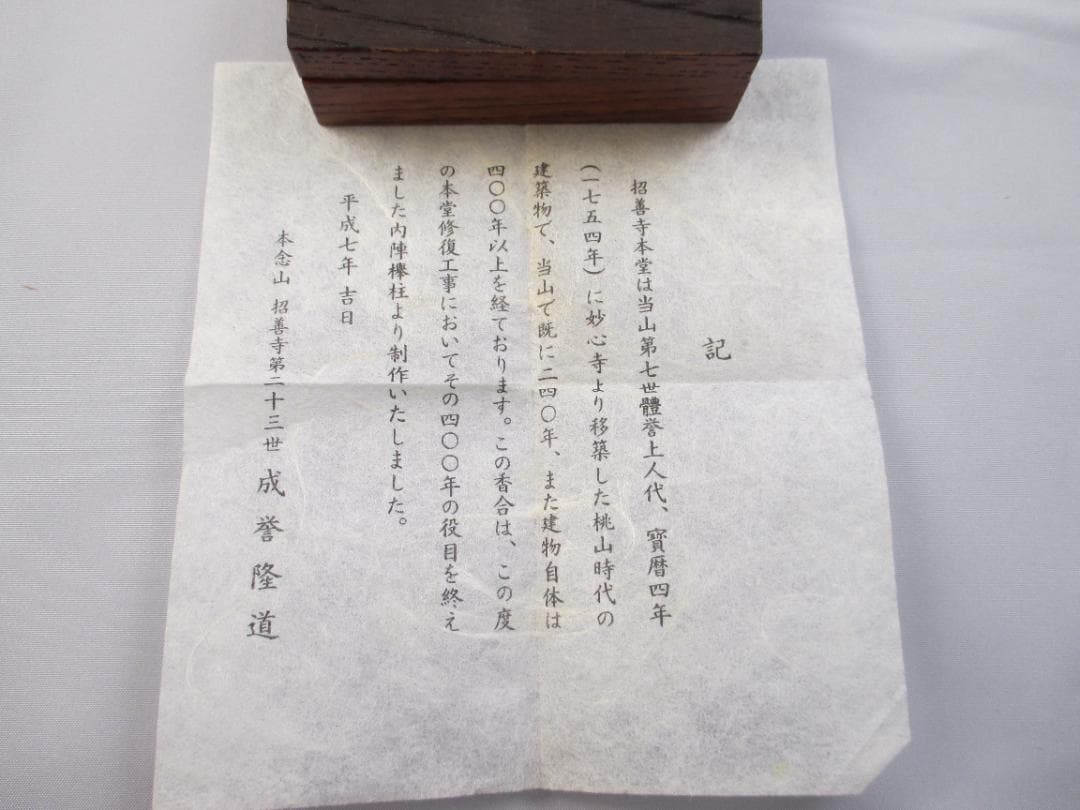 記
招善寺本堂は当山第七世體誉上人代、寳暦四年
(一七五四年)に妙心寺より移築した桃山時代の
建築物で、当山で既に二四〇年、また建物自体は
四〇〇年以上を経ております。この香合は、この度
の本堂修復工事においてその四〇〇年の役目を終え
ました内陣欅柱より制作いたしました。
平成七年 吉日
本念山 招善寺第二十三世 成誉隆道